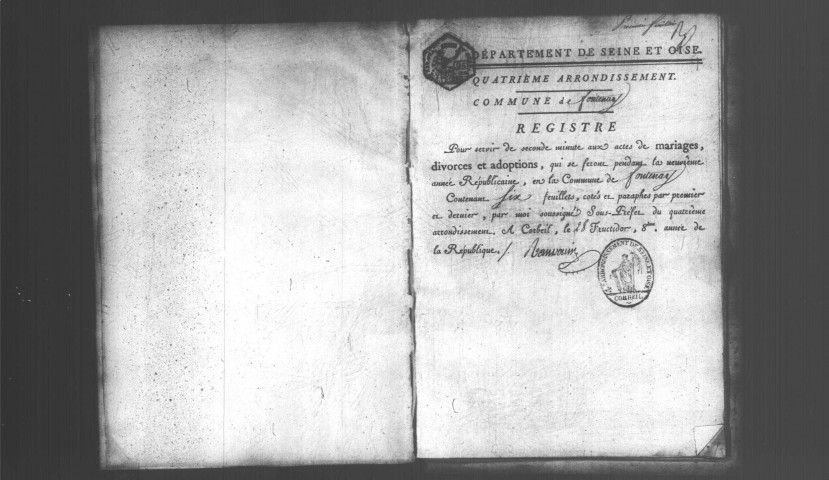 Premier feuillet
DÉPARTEMENT DE SEINE ET OISE.
QUATRIÈME ARRONDISSEMENT.
COMMUNE de fontenay
REGISTRE
Pour servir de seconde minute aux actes de mariages,
divorces et adoptions, qui se feront pendant la neuvième
année Républicaine, en la Commune de fontenay
Contenant six feuillets, cotés et paraphés par premier
et dernier, par moi soussigné Sous-Préfet du quatrième
arrondissement. A Corbeil, le 28 Fructidor, 8ème année de
la République.
CORBEIL